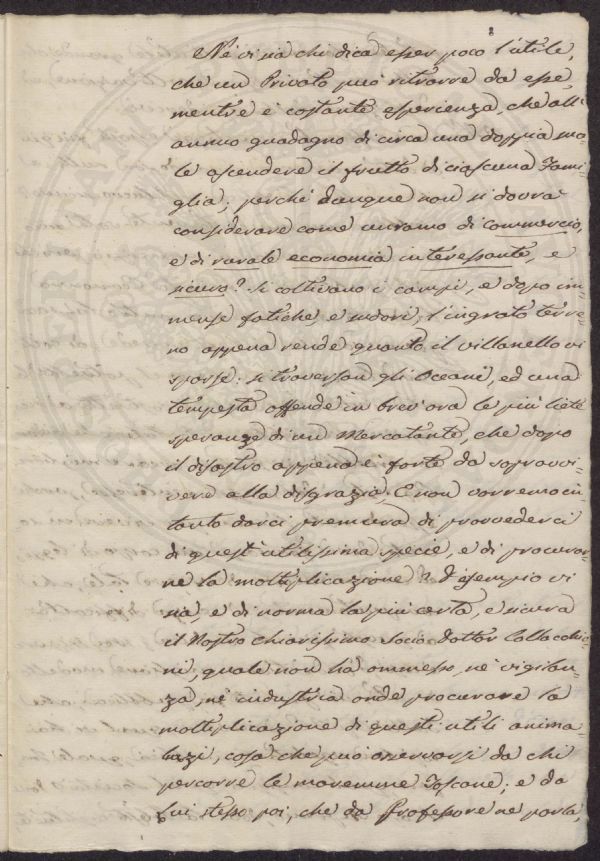 Nè vi sia chi dica esser poco l'utile,
che un Privato può ritrarre da esse
mentre è costante esperienza, che all'
annuo guadagno di circa una doppia suo-
le ascendere il frutto di ciascuna Fami-
glia; perchè dunque non si dovrà
considerare come un ramo di commercio,
e di rurale economia interessante, e
sicuro? Si coltivano i campi, e dopo im-
mense fatiche, e sudori, l'ingrato terre-
no appena rende quanto il villanello vi
sparse: si traversan gli Oceani, ed una
tempesta offende in brev'ora le più liete
speranze di un Mercatante, che dopo
il disastro appena è forte da sopravvi-
vere alla disgrazia. E non vorremo in-
tanto darci premura di provvederci
di quest'utilissima specie, e di procurar-
ne la moltiplicazione? D'esempio vi
sia, e di norma la più certa, e sicura
il Nostro chiarissimo Socio Dottor
ni, quale non hà ommesso, nè vigilan-
za, nè industria onde procurare la
moltiplicazione di questi utili anima-
luzzi, cosa che può osservarsi da chi
percorre le maremme Toscane; e da
lui stesso poi, che da Professore ne parla,